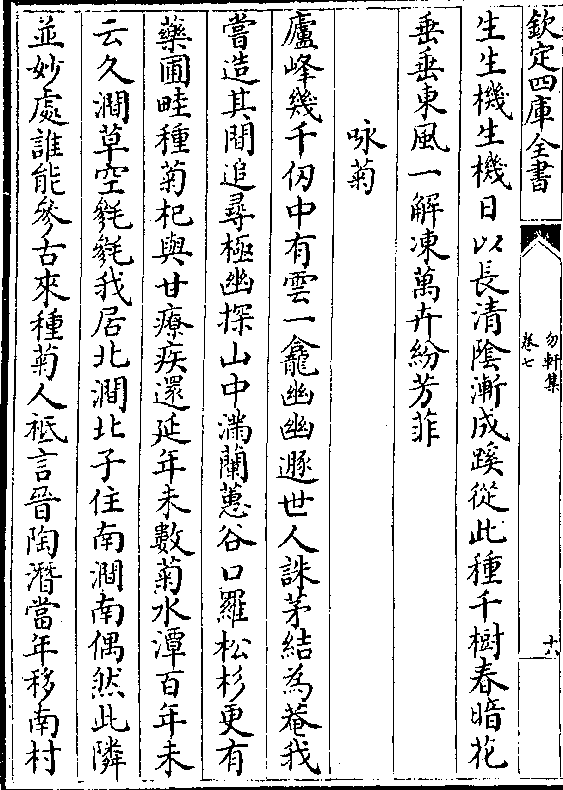 欽定四庫全書
勿軒集
卷七
十八
生生機生機日以長清陰漸成蹊從此種千樹春暗花
垂垂東風一解凍萬卉紛芳菲
咏菊
廬峰幾千仞中有雲一龕幽幽遯世人誅茅結為菴我
嘗造其間追尋極幽探山中滿蘭蕙谷口羅松杉更有
藥圃畦種菊杞與甘療疾還延年未數菊水潭百年未
云久澗草空毿毿我居北澗北子住南澗南偶然此隣
並妙處誰能參古來種菊人祗言晉陶潛當年移南村